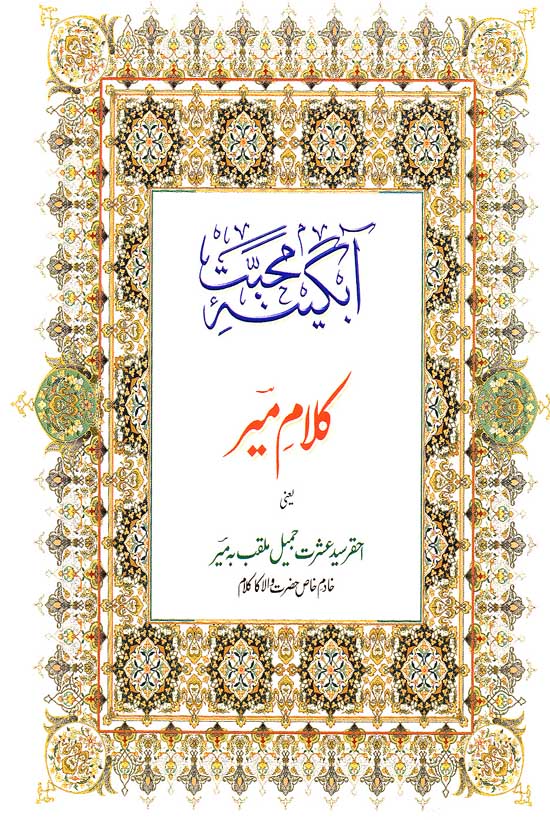 آبگینۂ محبّت
کلامِ میرؔ
یعنی
احقر سید عشرت جمیل ملقب بہ میرؔ
خادم خاص حضرت والا کا کلام